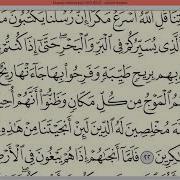 قُلِ ٱللَّهُ أَسْرَعُ مَكْرًا إِنَّ رُسُلَنَا يَكْتُبُونَ
ٱلَّذِى يُسَيِّرُكُمْ فِى ٱلْبَرِّ وَٱلْبَحْرِ حَتَّىٰٓ إِذَا كُنتُمْ
بِهِم بِرِيحٍ طَيِّبَةٍ وَفَرِحُوا۟ بِهَا جَآءَتْهَا رِيحٌ
ٱلْمَوْجُ مِن كُلِّ مَكَانٍ وَظَنُّوٓا۟ أَنَّهُمْ أُحِيطَ
مُخْلِصِينَ لَهُ ٱلدِّينَ لَئِنْ أَنجَيْتَنَا مِنْ هَٰذِهِ
كِرِينَ ٢٢ فَلَمَّآ أَنجَىٰهُمْ إِذَا هُمْ يَبْغُونَ فِى ٱلْأَرْ